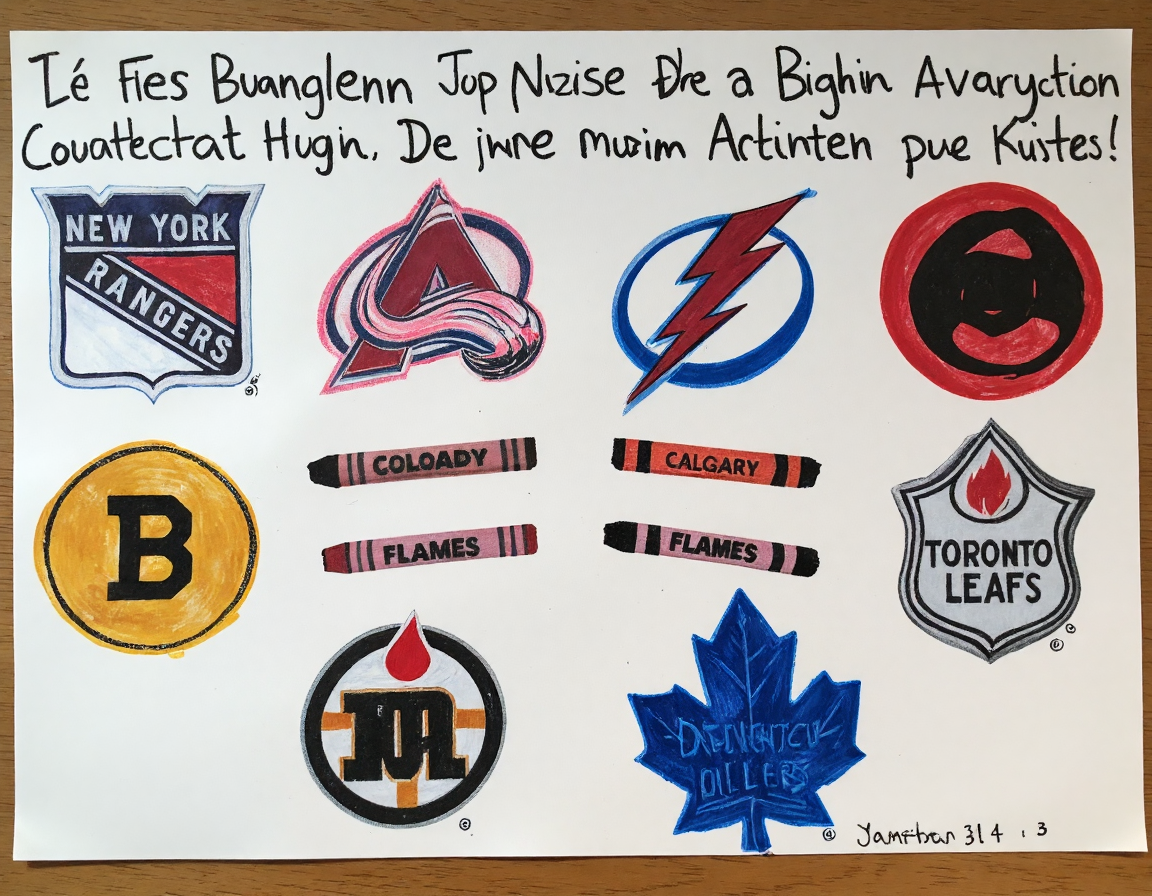 Ié Fies Buanglenn Jup Nizise Đre a Bighin Avaryction
Couattectat Hugin. De jwre muoim Actinten pue Kuistes!
NEW YORK
RANGERS
A
B
COLOADY
CALGARY
FLAMES
FLAMES
TORONTO
LEAFS
OILLERS
314 : 3